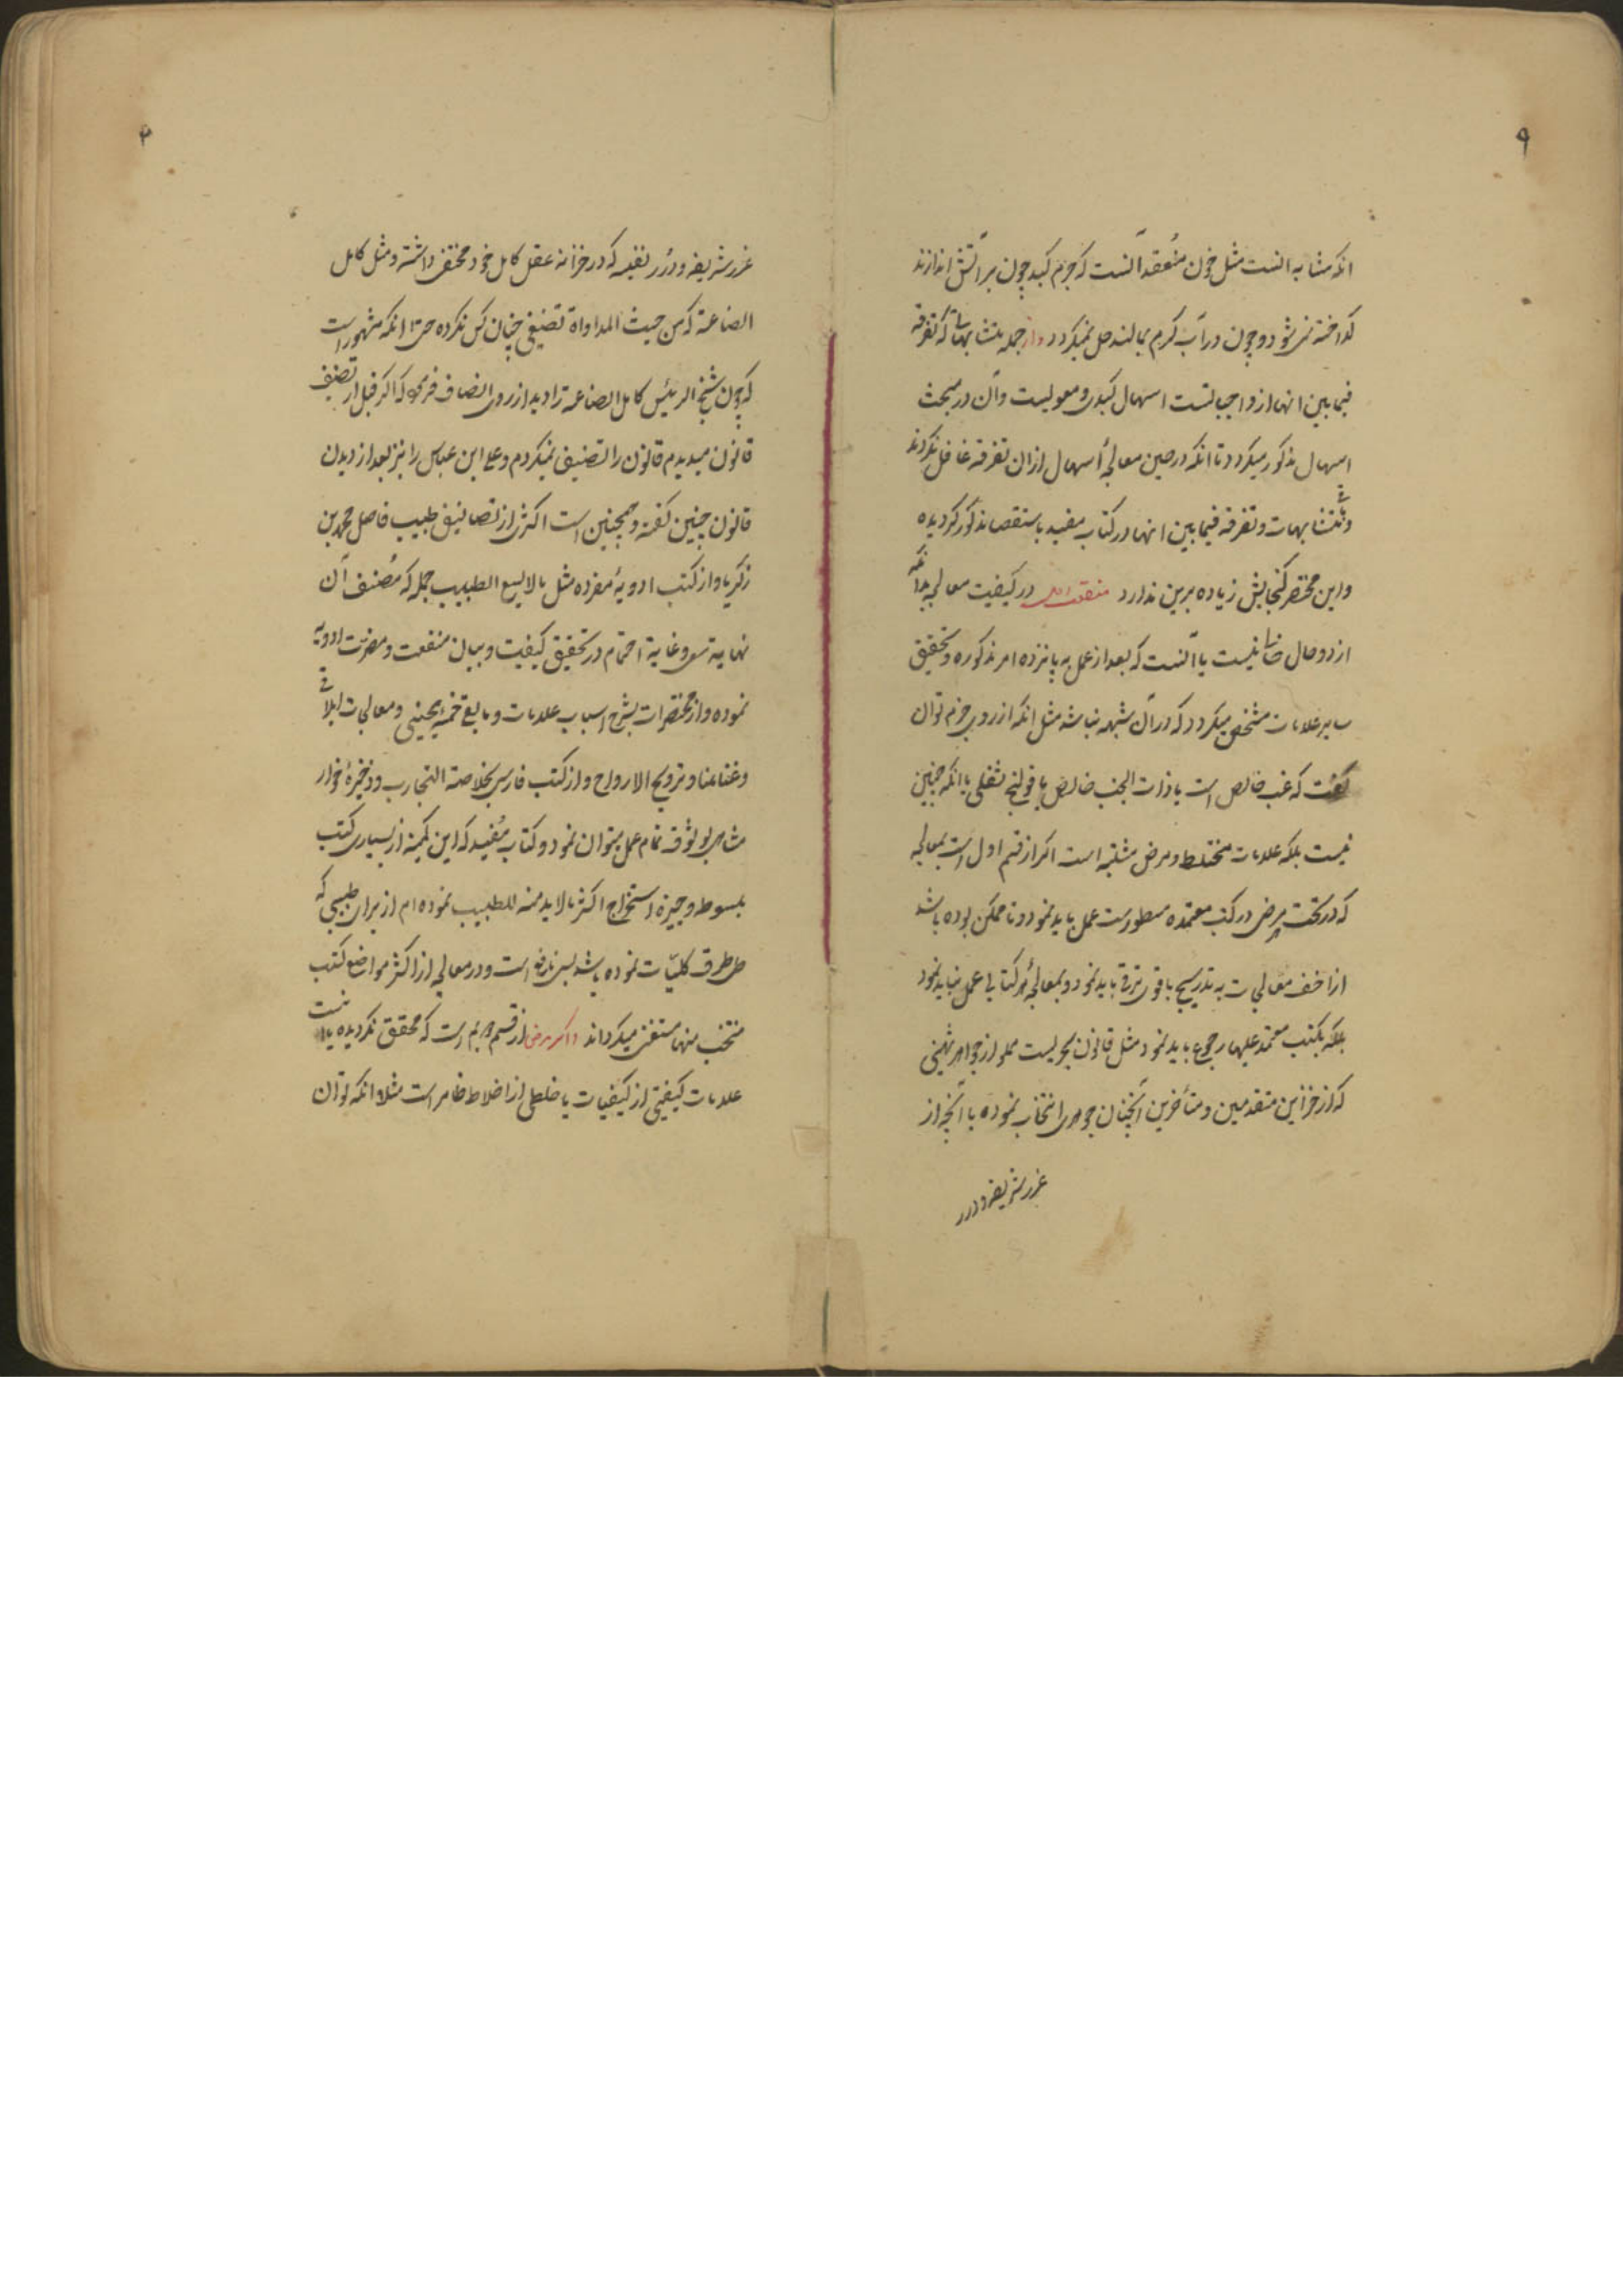 ۹
انکه مشابه انست مثل خون منعقد آنست که جرم کبد چون بر آتش اندازند
کداخته نمی شود و چون در آب کرم بمالند حل نمیکردد و از جمله متشابهات که تفرقه
فیما بین انها از واجباتست اسهال کبدی و معویست و آن در مبحث
اسهال مذکور میکردد تا انکه در حین معالجهٔ اسهال ازان تفرقه غافل نکردند
و متشابهات و تفرقه فیما بین انها در کتاب مفید باستقصا مذکور کردیده
و این مختصر کنجایش زیاده برین ندارد در کیفیت معالجه بدانکه
از دو حال خالی نیست یا آنست که بعد از عمل به پانزده امر مذکوره و تحقیق
سایر علامات مشخص میکردد که در آن شبهه نباشد مثل انکه از روی جزم توان
کفت که غب خالص است یا ذات الجنب خالص یا قولنج ثفلی یا انکه چنین
نیست بلکه علامات مختلط و مرض مشتبه است اکر از قسم اول است بمعالجه
که در تحت هر مرض در کتب معتمده مسطورست عمل باید نمود و تا ممکن بوده باشد
از اخف معالجات به تدریج باقوی ترقی باید نمود و بمعالجهٔ هر کتابی عمل نباید نمود
بلکه بکتب معتمد علیها رجوع باید نمود مثل قانون بحریست مملو از جواهر ثمینی
که از خزاین متقدمین و متأخرین آنچنان جوهری انتخاب نموده با آنچه از
غرر شریفه و درر
غرر شریفه و درر نفیسه که در خزانه عقل کامل خود مختفی داشته و مثل کامل
الصناعة که من حیث المداواة تصنیفی چنان کس نکرده حتی انکه مشهور است
که چون شیخ الرئیس کامل الصناعه را دید از روی انصاف فرمود که اکر قبل از تصنیف
قانون میدیدم قانون را تصنیف نمیکردم و علی ابن عباس را نیز بعد از دیدن
قانون چنین کفته و همچنین است اکثری از تصانیف طبیب فاضل محمد بن
زکریا و از کتب ادویهٔ مفرده مثل مالایسع الطبیب جهله که مصنف آن
نهایة سعی و غایة اهتمام در تحقیق کیفیت و بیان منفعت و مضرت ادویه
نموده و از مختصرات بشرح اسباب علامات و مایع خمسهٔ یحیی و معالجات ایلاقی
و غنامنا و ترویح الارواح و از کتب فارسی بخلاصة التجارب و ذخیرهٔ خوارز
مشاهی بوثوق تمام عمل میتوان نمود و کتاب مفید که این کمینه از بسیاری کتب
مبسوط و جیزه استخراج اکثر مالابد منه للطبیب نموده ام از برای طبیبی که
طی طرق کلیات نموده باشد بس نافع است و در معالجه از اکثر مواضع کتب
منتخب منها مستغنی میکرداند و اکر مرض از قسم دویم است که محقق نکردیده یا انست
علامات کیفیتی از کیفیات یا خلطی از اخلاط ظاهر است مثلا انکه توان